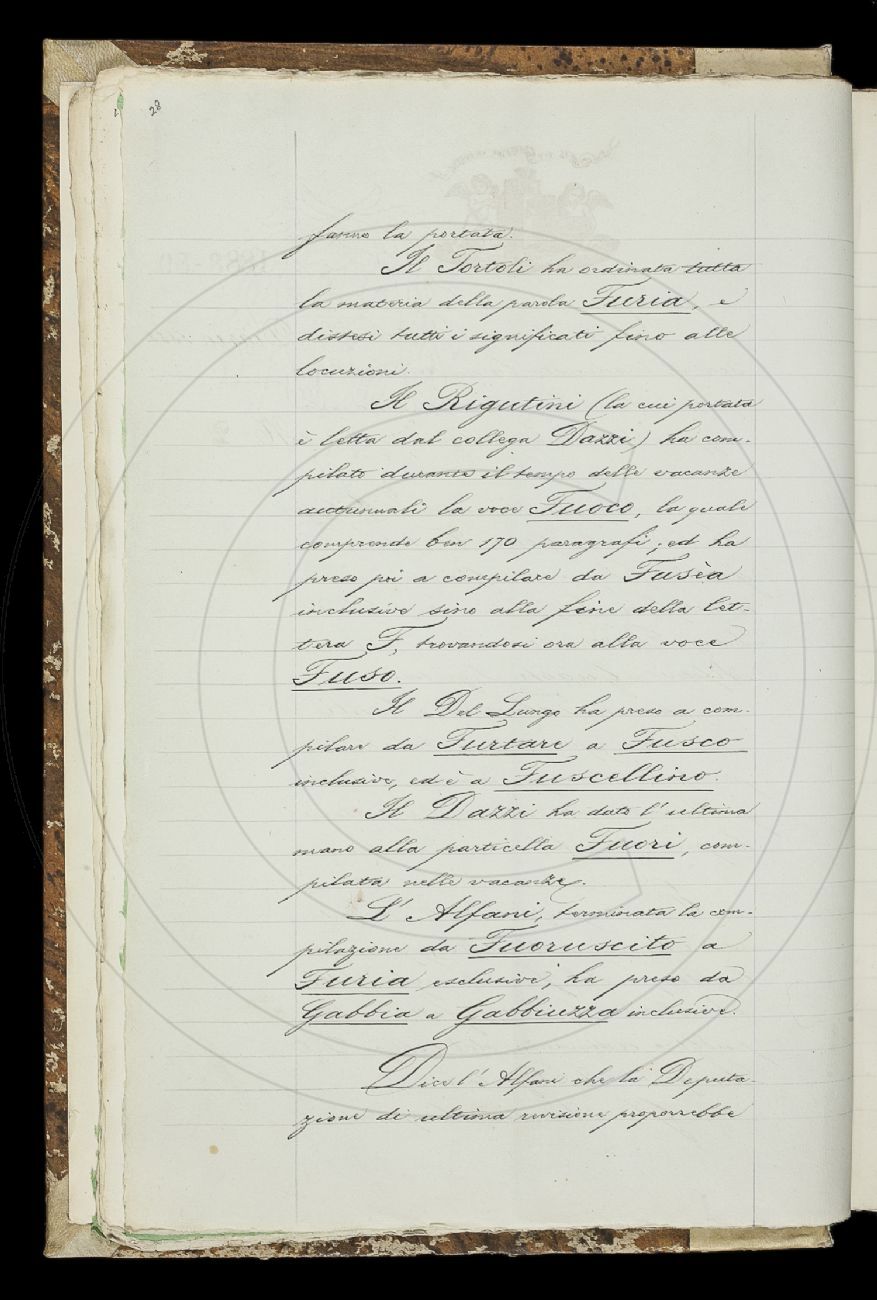 28
fanno la portata.
Il Tortoli ha ordinata tutta
la materia della parola Furia, e
distesi tutti i significati fino alle
locuzioni.
Il Rigutini (la cui portata
è letta dal collega Dazzi) ha com-
pilato durante il tempo delle vacanze
autunnali la voce Fuoco, la quale
comprende ben 170 paragrafi; ed ha
preso poi a compilare da Fusèa
inclusive sino alla fine della let-
tera F, trovandosi ora alla voce
Fuso.
Il Del Lungo ha preso a com-
pilare da Furtare a Fusco
inclusive, ed è a Fuscellino.
Il Dazzi ha dato l'ultima
mano alla particella Fuori, com-
pilata nelle vacanze.
L'Alfani, terminata la com-
pilazione da Fuoruscito a
Furia esclusive, ha preso da
Gabbia a Gabbiuzza inclusive.
Dice l'Alfani che la Deputa-
zione di ultima revisione proporrebbe